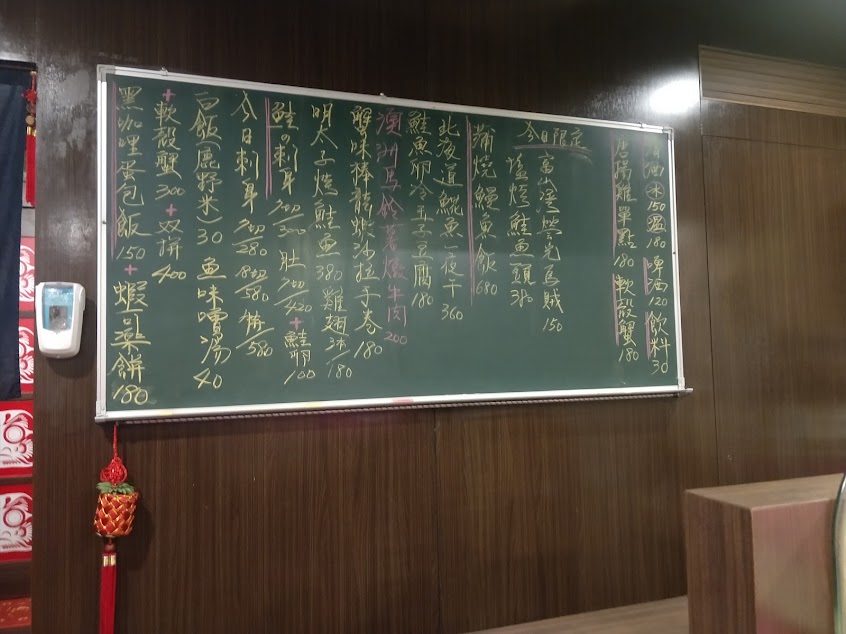 清酒 冰 150 溫 180 啤酒 120 飲料 30
唐揚雞單點 180 軟殼蟹 180
今日限定
富山灣螢光烏賊 150
塩燒鮭魚頭 380
蒲燒鰻魚飯 680
北海道鯤魚一夜干 360
鮭魚卵冷玉子豆腐 180
澳洲馬鈴薯燉牛肉 200
蟹味棒龍蝦沙拉手卷 180
明太子燒鮭魚 380 雞翅 3本/180
鮭の刺身 7切/300 肚 7切/420 +鮭卵 100
今日刺身 7切/280 8切/580 拼/580
白飯(鹿野米) 30 魚味噌湯 40
+軟殼蟹 300 +双拼 400
黑咖哩蛋包飯 150 +蝦可樂餅 180